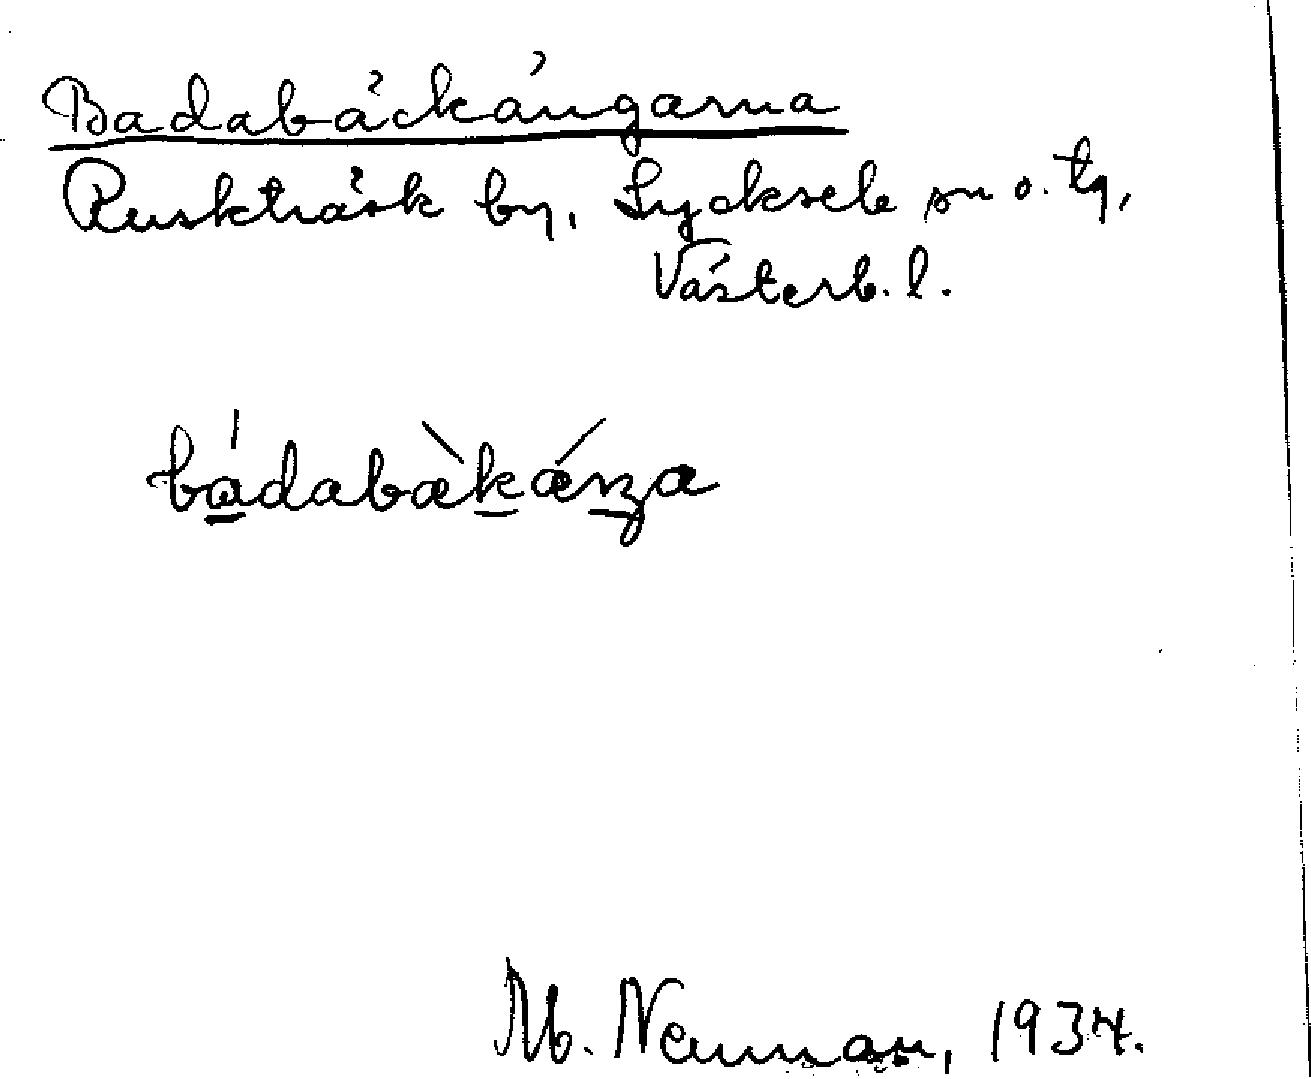 Badabäckängarna
Ruskträsk by, Lycksele sn o. tg,
Västerb. l.
M. Neuman, 1934.